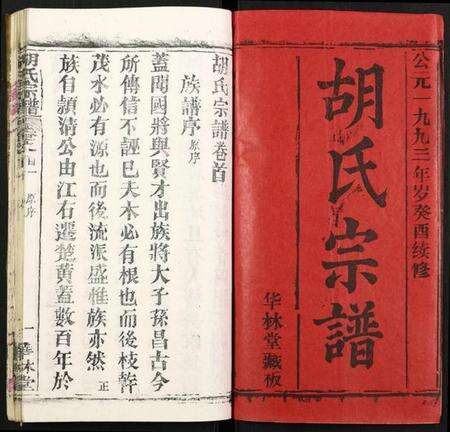 公元一九九三年岁癸酉续修
胡氏宗譜
华林堂藏板
胡氏宗譜卷首
族譜序 原序
蓋聞國將興賢才出族將大子孫昌古今
所傳信不誣巳夫木必有根也而後枝幹
茂水必有源也而後流派盛惟族亦然 正
族自穎清公由江右遷楚黃蓋數百年於
胡氏宗譜
原序
一
華林堂